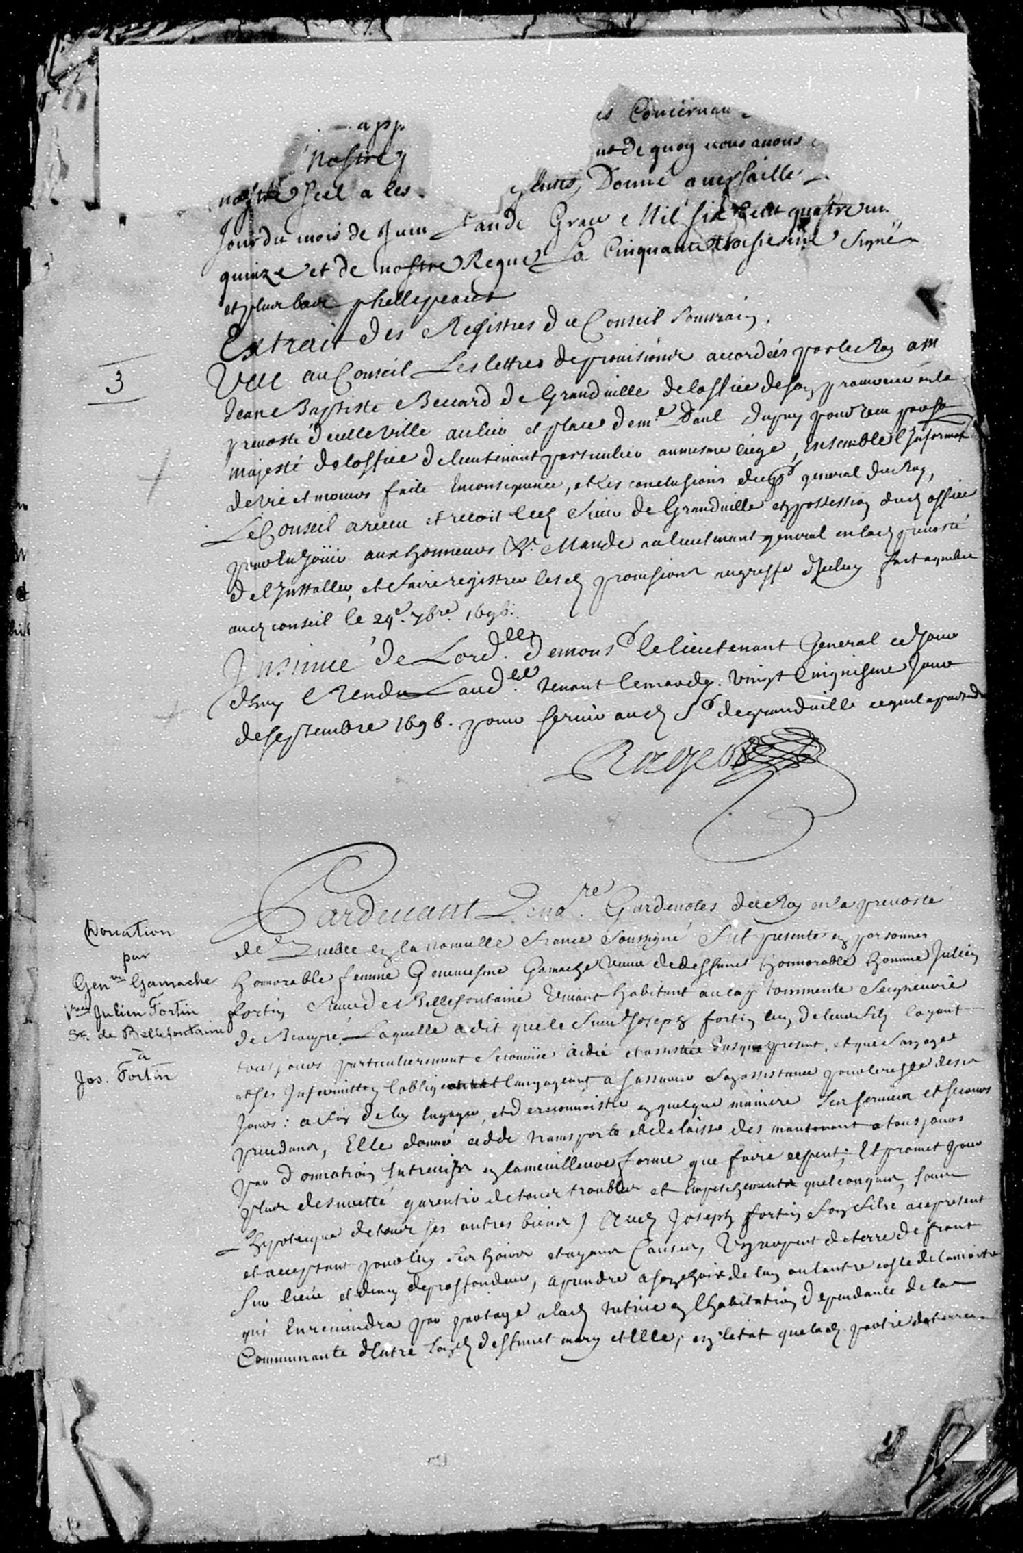 app
es Concernan
nostre
ns de quoy nous avons
nostre scel a ces
Donné a versaille
Jour du mois de Juin L'an de Grace Mil six Cent quatre vn
quinze et de nostre Regne La Cinquante troisiesme signé
et plus bas phellypeaux
Extrait des Registres du Conseil Souverain.
3
Veu au Conseil Les lettres de provisions accordées par le Roy a m
Jean Baptiste Becard de Grandville de loffice de son procureur en la
prevosté de cette ville au lieu et place de mr Paul Dupuy pourveu par sa
majesté de loffice de lieutenant particulier au mesme siege, Ensemble l'Informaon
de vie et moeurs faite En consequence, et les conclusions du pr general du Roy,
Le Conseil a receu et reçoit led Sieur de Grandville en possession dud office
pour en Jouir aux honneurs &a Mande au lieutenant general en lad prevosté
de l'Installer, et faire registrer lesd provisions au greffe d'Icelle fait
aud conseil le 24e 7bre 1696.
Insinué de Lordce de mons le lieutenant General ce Jour
d'huy Rendu Laudce tenant le mardy vingt cinquiesme Jour
de septembre 1696. pour servir aud Sr de grandville ce que
Rageot
Donation
par
Genve Gamache
Vve Julien Fortin
Sr. de Bellefontaine
à
Jos. Fortin
Pardevant Le nore Gardenotes du Roy en la prevosté
de Quebec en la nouvelle France Soussigné fut presente en personne
honnorable femme Genevieve Gamache veuve de deffunct honnorable homme Julien
fortin Sieur de Bellefontaine vivant habitant au cap tourmente Seigneurie
de Beaupré Laquelle a dit que le Sieur Joseph fortin luy de leurs fils layant
tousjours particulierement secourüe aidée et assistée Jusqua present, et que son age
et ses Infirmittez l'obligent et l'engageant a sassurer son assistance pour le reste de ses
Jours: a fin de luy Engager, et de reconnoistre en quelque maniere ses services et secours
prudens, Elle donne cedde transporte et delaisse des maintenant a tousjours
par donnation Entrevifs en la meilleure forme que faire ce peut; Et promet pour
plus de surreté garentir de tous troubles et Empeschements quelconques, sous
L'hypoteque de tous ses autres biens Aud Joseph fortin Son fils a ce present
et acceptant pour luy ses hoirs et ayans Causes, Un arpent de terre de front
sur lieüe et demy de proffondeur, a prendre a son choix de lun ou lautre costé de la moitié
qui Enreviendra par partage a lad veuve en l'habitation dependante de la
Communauté d'Entre Led deffunct mary et Elle, en l'etat que lad partie de terre